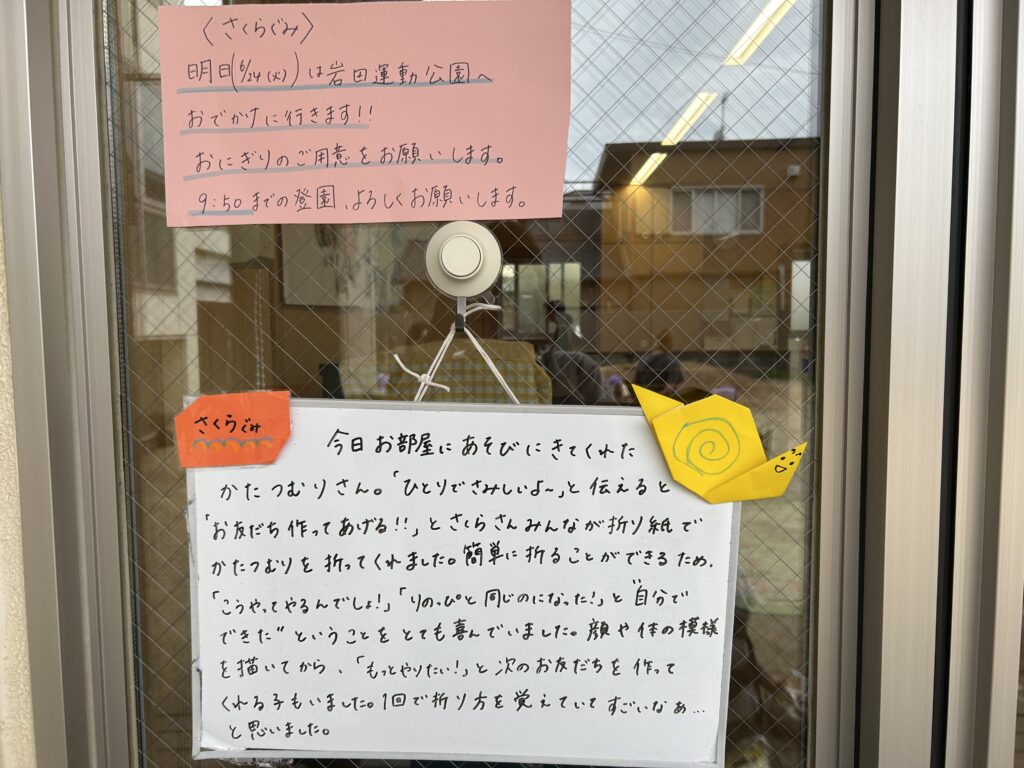 〈さくらぐみ〉
明日(6/24(火))は岩田運動公園へ
おでかけに行きます!!
おにぎりのご用意をお願いします。
9:50までの登園、よろしくお願いします。
さくらぐみ
今日お部屋にあそびにきてくれた
かたつむりさん。「ひとりでさみしいよ〜」と伝えると
「お友だち作ってあげる!!」とさくらさんみんなが折り紙で
かたつむりを折ってくれました。簡単に折ることができるため、
「こうやってやるんでしょ!」「りのっぴと同じのになった!」と"自分で
できた"ということをとても喜んでいました。顔や体の模様
を描いてから、「もっとやりたい!」と次のお友だちを作って
くれる子もいました。1回で折り方を覚えていてすごいなぁ…
と思いました。